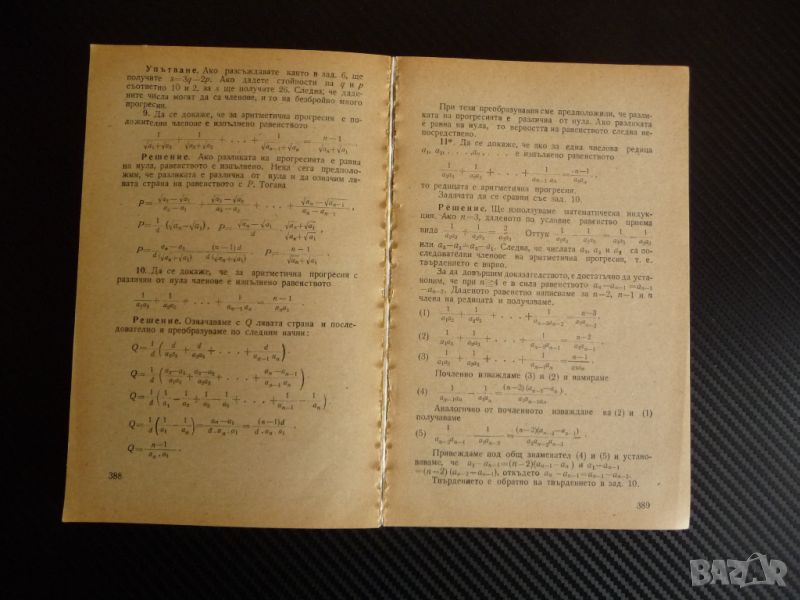 Упътване. Ако разсъждавате както в зад. 6, ще
получите s=3q−2p. Ако дадете стойности на q и p
съответно 10 и 2, за s ще получите 26. Следва, че дадените числа могат да са членове, и то на безбройно много
прогресии.
9. Да се докаже, че за аритметична прогресия с положителни членове е изпълнено равенството
1/(√a₁+√a₂) + 1/(√a₂+√a₃) + . . . + 1/(√aₙ₋₁+√aₙ) = (n−1)/(√aₙ+√a₁)
Решение. Ако разликата на прогресията е равна
на нула, равенството е изпълнено. Нека сега предположим, че разликата е различна от нула и да означим лявата страна на равенството с P. Тогава
P= (√a₂−√a₁)/(a₂−a₁) + (√a₃−√a₂)/(a₃−a₂) + . . . + (√aₙ−√aₙ₋₁)/(aₙ−aₙ₋₁)
P= 1/d (√aₙ−√a₁), P= (√aₙ−√a₁)/d · (√aₙ+√a₁)/(√aₙ+√a₁)
P= (aₙ−a₁)/(d(√aₙ+√a₁)) = (n−1)d/(d(√aₙ+√a₁)), P= (n−1)/(√aₙ+√a₁)
10. Да се докаже, че за аритметична прогресия с
различни от нула членове е изпълнено равенството
1/(a₁a₂) + 1/(a₂a₃) + . . . + 1/(aₙ₋₁aₙ) = (n−1)/(a₁aₙ)
Решение. Означаваме с Q лявата страна и последователно я преобразуваме по следния начин:
Q= 1/d (d/(a₁a₂) + d/(a₂a₃) + . . . + d/(aₙ₋₁aₙ)).
Q= 1/d ((a₂−a₁)/(a₁a₂) + (a₃−a₂)/(a₂a₃) + . . . + (aₙ−aₙ₋₁)/(aₙ₋₁aₙ))
Q= 1/d (1/a₁ − 1/a₂ + 1/a₂ − 1/a₃ + . . . + 1/aₙ₋₁ − 1/aₙ)
Q= 1/d (1/a₁ − 1/aₙ) = (aₙ−a₁)/(d.aₙ.a₁) = (n−1)d/(d.aₙ.a₁)
Q= (n−1)/(aₙ.a₁)
388
При тези преобразувания сме предположили, че разликата на прогресията е различна от нула. Ако разликата
е равна на нула, то верността на равенството следва непосредствено.
11*. Да се докаже, че ако за една числова редица
a₁, a₂, . . ., aₙ, . . . е изпълнено равенството
1/(a₁a₂) + 1/(a₂a₃) + . . . + 1/(aₙ₋₁aₙ) = (n−1)/(a₁aₙ),
то редицата е аритметична прогресия.
Задачата да се сравни със зад. 10.
Решение. Ще използуваме математическа индукция. Ако n=3, даденото по условие равенство приема
вида 1/(a₁a₂) + 1/(a₂a₃) = 2/(a₁a₃). Оттук
или a₃−a₂=a₂−a₁. Следва, че числата a₁, a₂ и a₃ са последователни членове на аритметична прогресия, т. е.
твърдението е вярно.
За да довършим доказателството, е достатъчно да установим, че при n≥4 е в сила равенството aₙ−aₙ₋₁=aₙ₋₁
−aₙ₋₂. Даденото равенство написваме за n−2, n−1 и n
члена на редицата и получаваме.
(1) 1/(a₁a₂) + 1/(a₂a₃) + . . . + 1/(aₙ₋₃aₙ₋₂) = (n−3)/(a₁aₙ₋₂),
(2) 1/(a₁a₂) + 1/(a₂a₃) + . . . + 1/(aₙ₋₂aₙ₋₁) = (n−2)/(a₁aₙ₋₁),
(3) 1/(a₁a₂) + 1/(a₂a₃) + . . . + 1/(aₙ₋₁aₙ) = (n−1)/(a₁aₙ)
Почленно изваждаме (3) и (2) и намираме
(4) 1/(aₙ₋₁aₙ) − 1/(a₁aₙ) = (n−2)(aₙ₋₁−aₙ)/(a₁aₙ₋₁aₙ).
Аналогично от почленното изваждане на (2) и (1)
получаваме
(5) 1/(aₙ₋₂aₙ₋₁) − 1/(a₁aₙ₋₁) = (n−2)(aₙ₋₂−aₙ₋₁)/(a₁aₙ₋₂aₙ₋₁).
Привеждаме под общ знаменател (4) и (5) и установяваме, че a₁−aₙ₋₁=(n−2)(aₙ₋₁−aₙ) и a₁−aₙ₋₁
=(n−2)(aₙ₋₂−aₙ₋₁), откъдето aₙ−aₙ₋₁=aₙ₋₁−aₙ₋₂.
Твърдението е обратно на твърдението в зад. 10.
389
BAZAR